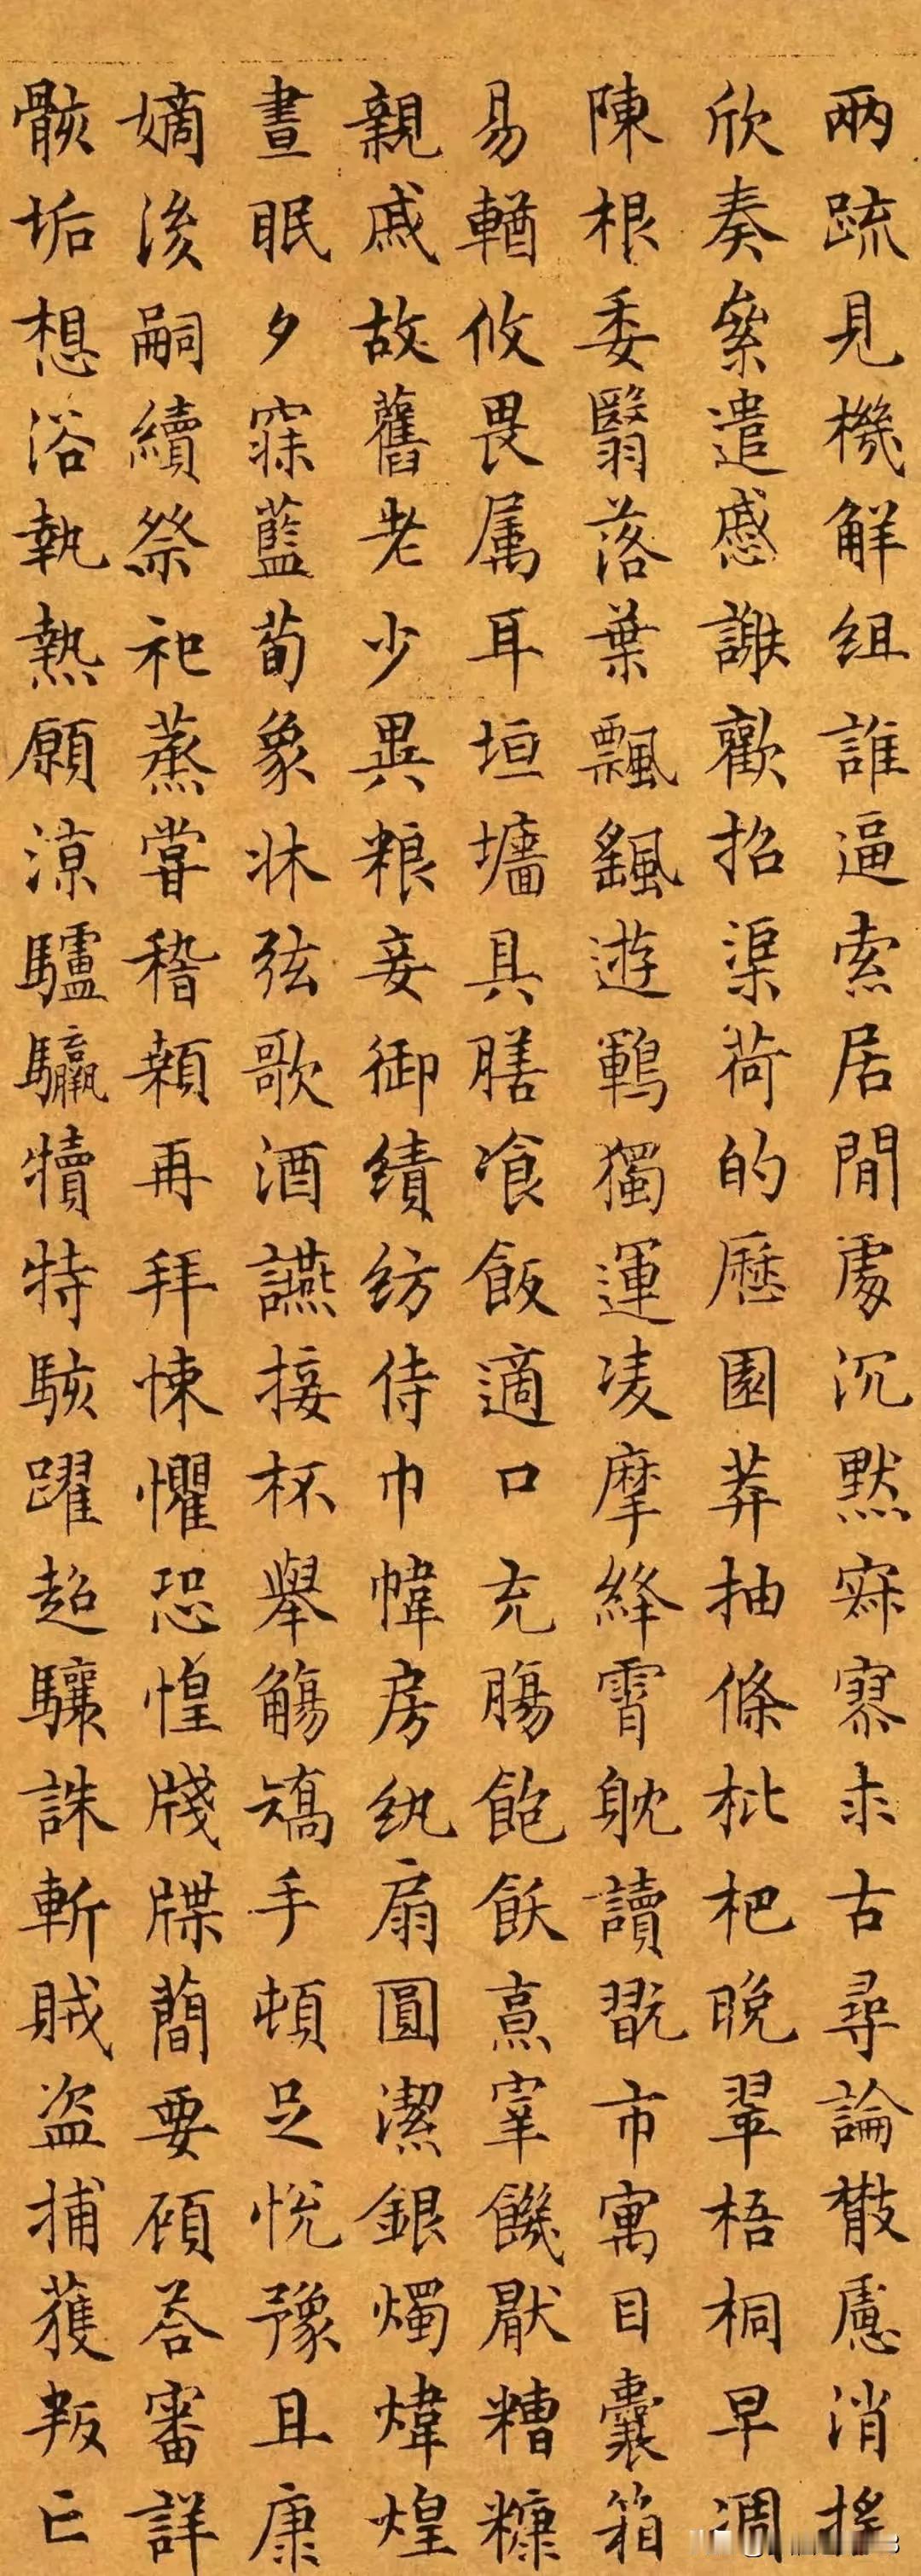 兩疏見機解组誰逼索居閒處沉默寂寥求古尋論散慮消搖
欣奏絫遣慼謝歡招渠荷的歷園莽抽條枇杷晚翠梧桐早凋
陳根委翳落葉飄颻遊鵾獨運凌摩絳霄耽讀翫市寓目囊箱
易輶攸畏属耳垣墻具膳飡飯適口充腸飽飫烹宰饑厭糟糠
親戚故舊老少異粮妾御績紡侍巾帷房紈扇圓潔銀燭煒煌
晝眠夕寐藍荀象牀弦歌酒讌接杯舉觴矯手頓足悅豫且康
嫡後嗣續祭祀蒸嘗稽顙再拜悚懼恐惶牋牒簡要顧荅審詳
骸垢想浴執熱願涼驢騾犢特駭躍超驤誅斬賊盜捕獲叛亡